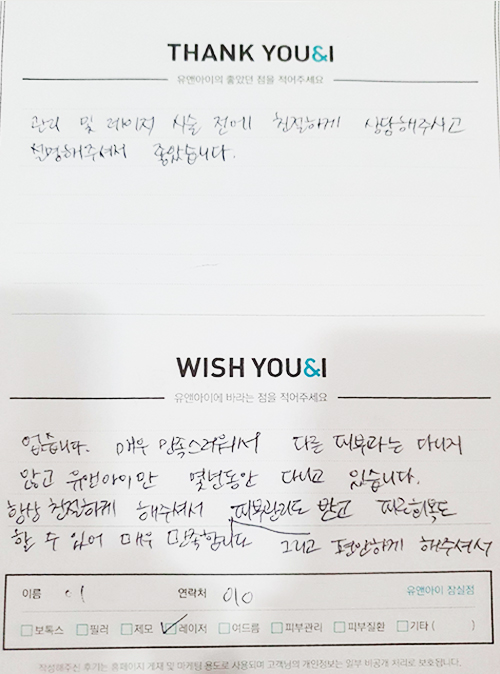 THANK YOU&I
유앤아이의 좋았던 점을 적어주세요
관리 및 레이저 시술 전에 친절하게 상담해주시고
설명해주셔서 좋았습니다.
WISH YOU&I
유앤아이에 바라는 점을 적어주세요
없습니다. 매우 만족스러워서 다른 피부과는 다니지
않고 유앤아이만 몇년동안 다니고 있습니다.
항상 친절하게 해주셔서 피부관리도 받고 피로회복도
할 수 있어 매우 만족합니다 그리고 편안하게 해주셔서
이름 이 연락처 010 유앤아이 잠실점
보톡스 필러 제모 레이저 여드름 피부관리 피부질환 기타 ( )
작성해주신 후기는 홈페이지 게재 및 마케팅 용도로 사용되며 고객님의 개인정보는 일부 비공개 처리로 보호됩니다.